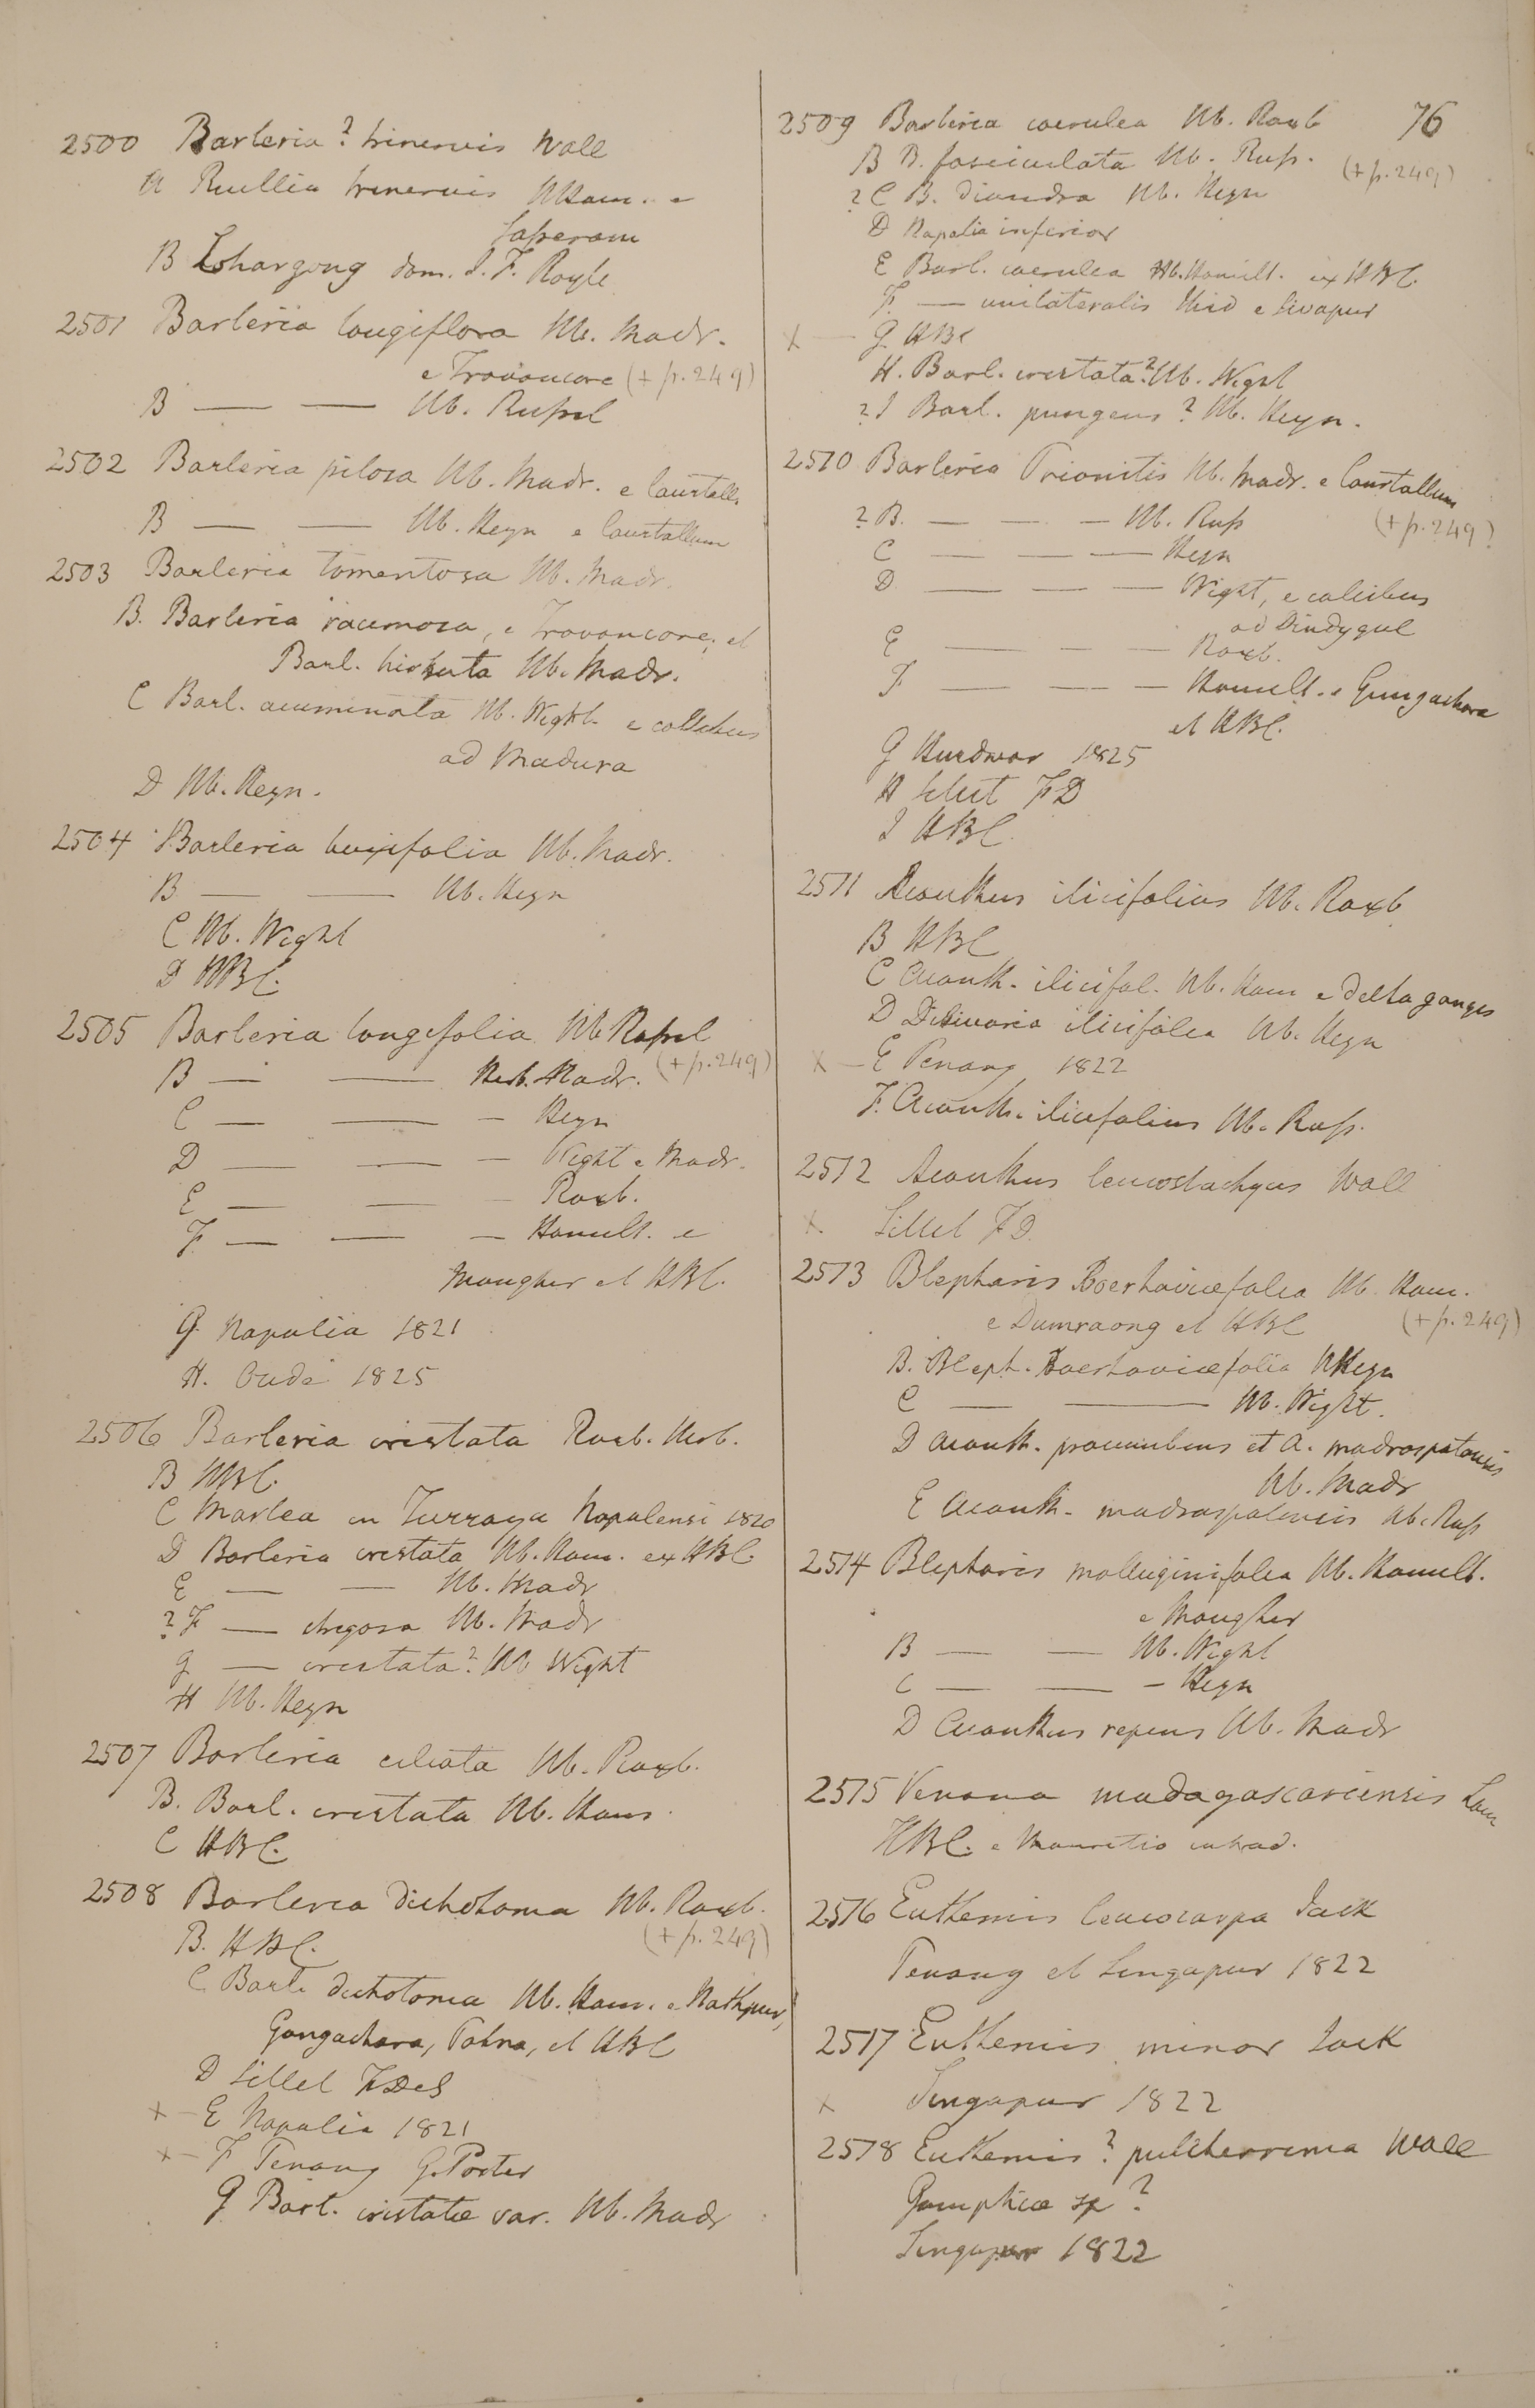 76
2500 Barleria? trinervis Wall
A Ruellia trinervis HHam. e
B Lohargong dom. J. F. Royle
2501 Barleria longiflora Hb. Madr.
e Travancore (+ p. 249)
B — — Hb. Russel
2502 Barleria pilosa Hb. Madr. e
B — — Hb. Heyn e
2503 Barleria tomentosa Hb. Madr.
B. Barleria racemosa, e Travancore, et
Barl. hirsuta Hb. Madr.
C Barl. acuminata Hb. Wight e collibus
ad Madura
D Hb. Heyn.
2504 Barleria buxifolia Hb. Madr.
B — — Hb. Heyn
C Hb. Wight
D HBC.
2505 Barleria longifolia Hb Russel
B — — Herb. Madr. (+ p. 249)
C — — — Heyn
D — — — Wight e Madr.
E — — — Roxb.
F — — — Hamilt. e
Mongher et HBC.
G Napalia 1821
H. Oude 1825
2506 Barleria cristata Roxb. Herb.
B HBC.
C Martea in Turraya Napalensi 1820
D Barleria cristata Hb. Ham. ex HBC.
E — — Hb. Madr
? F — strigosa Hb. Madr
G — cristata? Hb Wight
H Hb. Heyn
2507 Barleria ciliata Hb. Roxb.
B. Barl. cristata Hb. Ham.
C HBC.
2508 Barleria dichotoma Hb. Roxb.
(+ p. 249)
B. HBC.
C Barl. dichotoma Hb. Ham. e Nathpur,
Gongachora, Patna, et HBC
D Sillet
x — E Napalia 1821
x — F Penang G. Porter
G Barl. cristatæ var. Hb. Madr
2509 Barleria caerulea Hb. Roxb
B B. fasciculata Hb. Russ. (+ p. 249)
? C B. diandra Hb. Heyn
D Napalia inferior
E Barl. caerulea Hb. Hamilt. ex HBC.
F. — unilateralis Ibid e Sivapur
x — G HBC
H. Barl. cristata? Hb. Wight
? I Barl. pungens? Hb. Heyn.
2510 Barleria Prionitis Hb. Madr. e
? B. — — — Hb. Russ (+ p. 249)
C — — — Heyn
D — — — Wight, e collibus
ad Dindygul
E — — — Roxb.
F — — — Hamilt. e Gungachora
et HBC.
G Hurdwar 1825
H Silhet FD
I HBC.
2511 Acanthus ilicifolius Hb. Roxb
B HBC
C Acanth. ilicifol. Hb. Ham e delta ganges
D Dilivaria ilicifolia Hb. Heyn
x — E Penang 1822
F. Acanth. ilicifolius Hb. Russ.
2512 Acanthus leucostachyus Wall
x Sillet FD.
2513 Blepharis Boerhaviæfolia Hb. Ham.
e Dumraong et HBC (+ p. 249)
B. Bleph. Boerhaviæfolia HHeyn
C — — Hb. Wight.
D Acanth. procumbens et A. madraspatensis
Hb. Madr
E Acanth. madraspatensis Hb. Russ
2514 Blepharis molluginifolia Hb. Hamilt.
e Mongher
B — — Hb. Wight
C — — — Heyn
D Acanthus repens Hb. Madr
2515 Venana madagascariensis Lam
HBC. e Mauritio introd.
2516 Euthemis leucocarpa Jack
Penang et Singapur 1822
2517 Euthemis minor Jack
x Singapur 1822
2518 Euthemis? pulcherrima Wall
Gomphiæ sp?
Singapur 1822